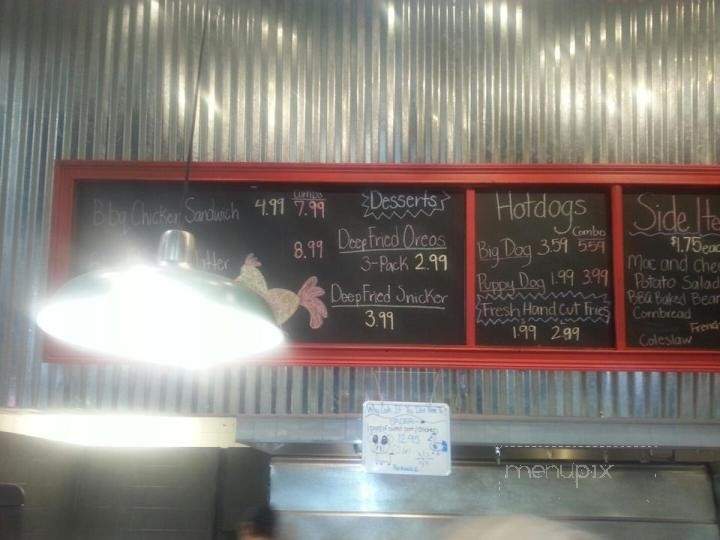 Combo
B.b.q. Chicken Sandwich 4.99 7.99
8.99
Desserts
Deep Fried Oreos
3-Pack 2.99
Deep Fried Snicker
3.99
Hotdogs
Combo
Big Dog 3.59 5.59
Puppy Dog 1.99 3.99
Fresh Hand Cut Fries
1.99 2.99
Side Ite
$1.75 eac
Mac and Che
Potato Salad
BBQ Baked Bean
Cornbread
Frenc
Coleslaw
12.95
menupix